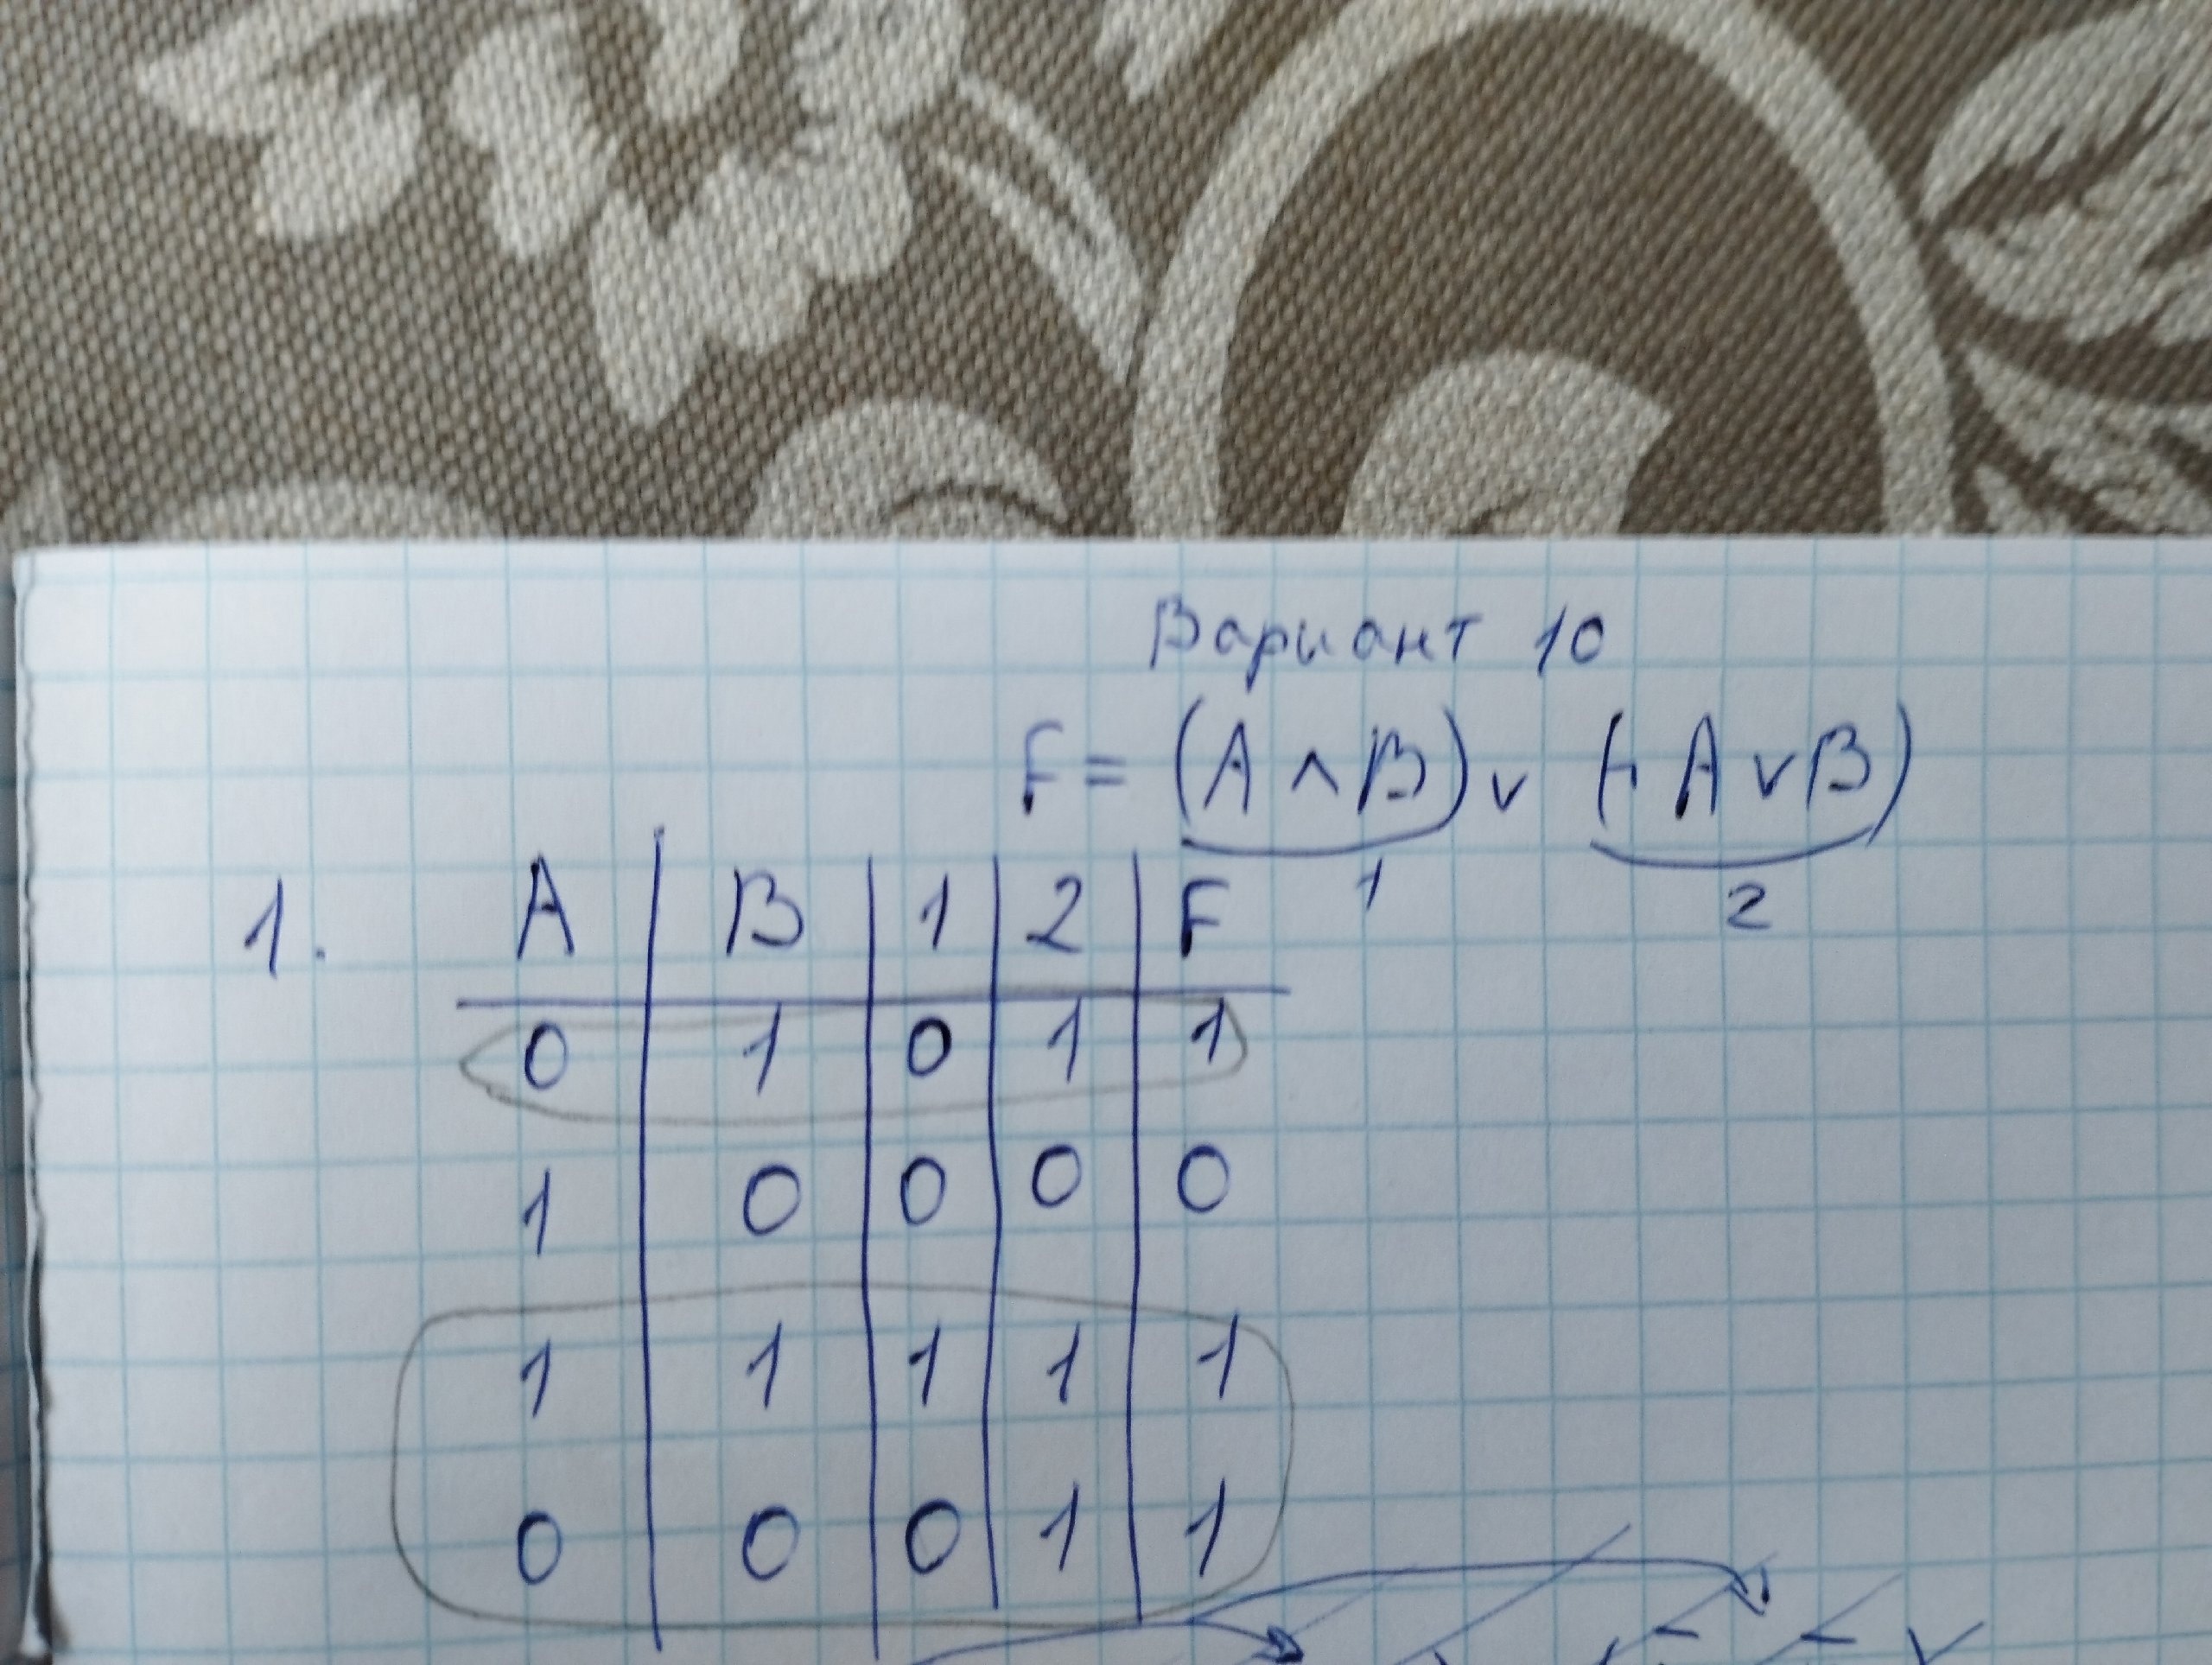 Вариант 10
F = (A ∧ B) ∨ (¬ A ∨ B)
1 2
1. A B 1 2 F
0 1 0 1 1
1 0 0 0 0
1 1 1 1 1
0 0 0 1 1